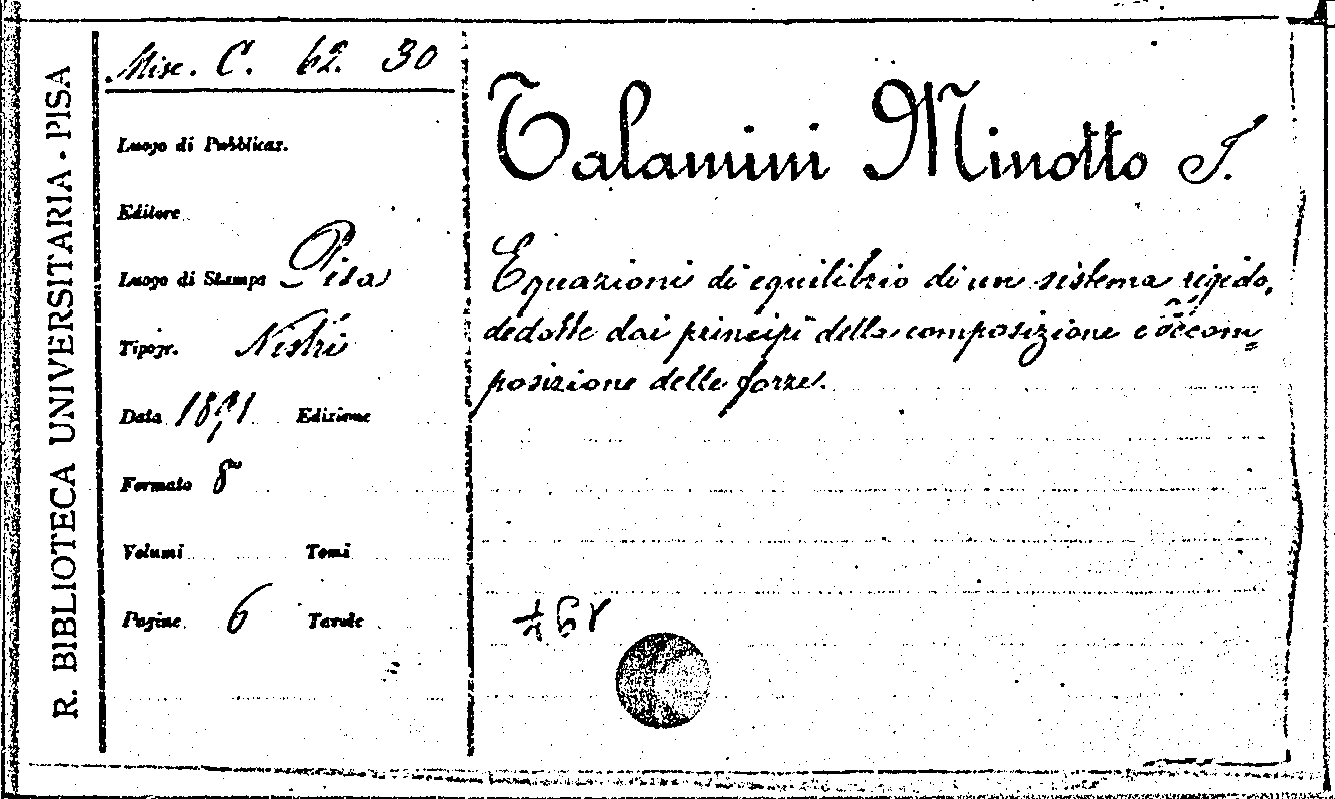 R. BIBLIOTECA UNIVERSITARIA - PISA
Misc. C. 62. 30
Luogo di Pubblicaz.
Editore
Luogo di Stampa Pisa
Tipogr. Nistri
Data 1891 Edizione
Formato 8°
Volumi Tomi
Pagine 6 Tavole
Talamini Minotto
Equazioni di equilibrio di un sistema rigido,
dedotte dai principi della composizione e
posizione delle forze.